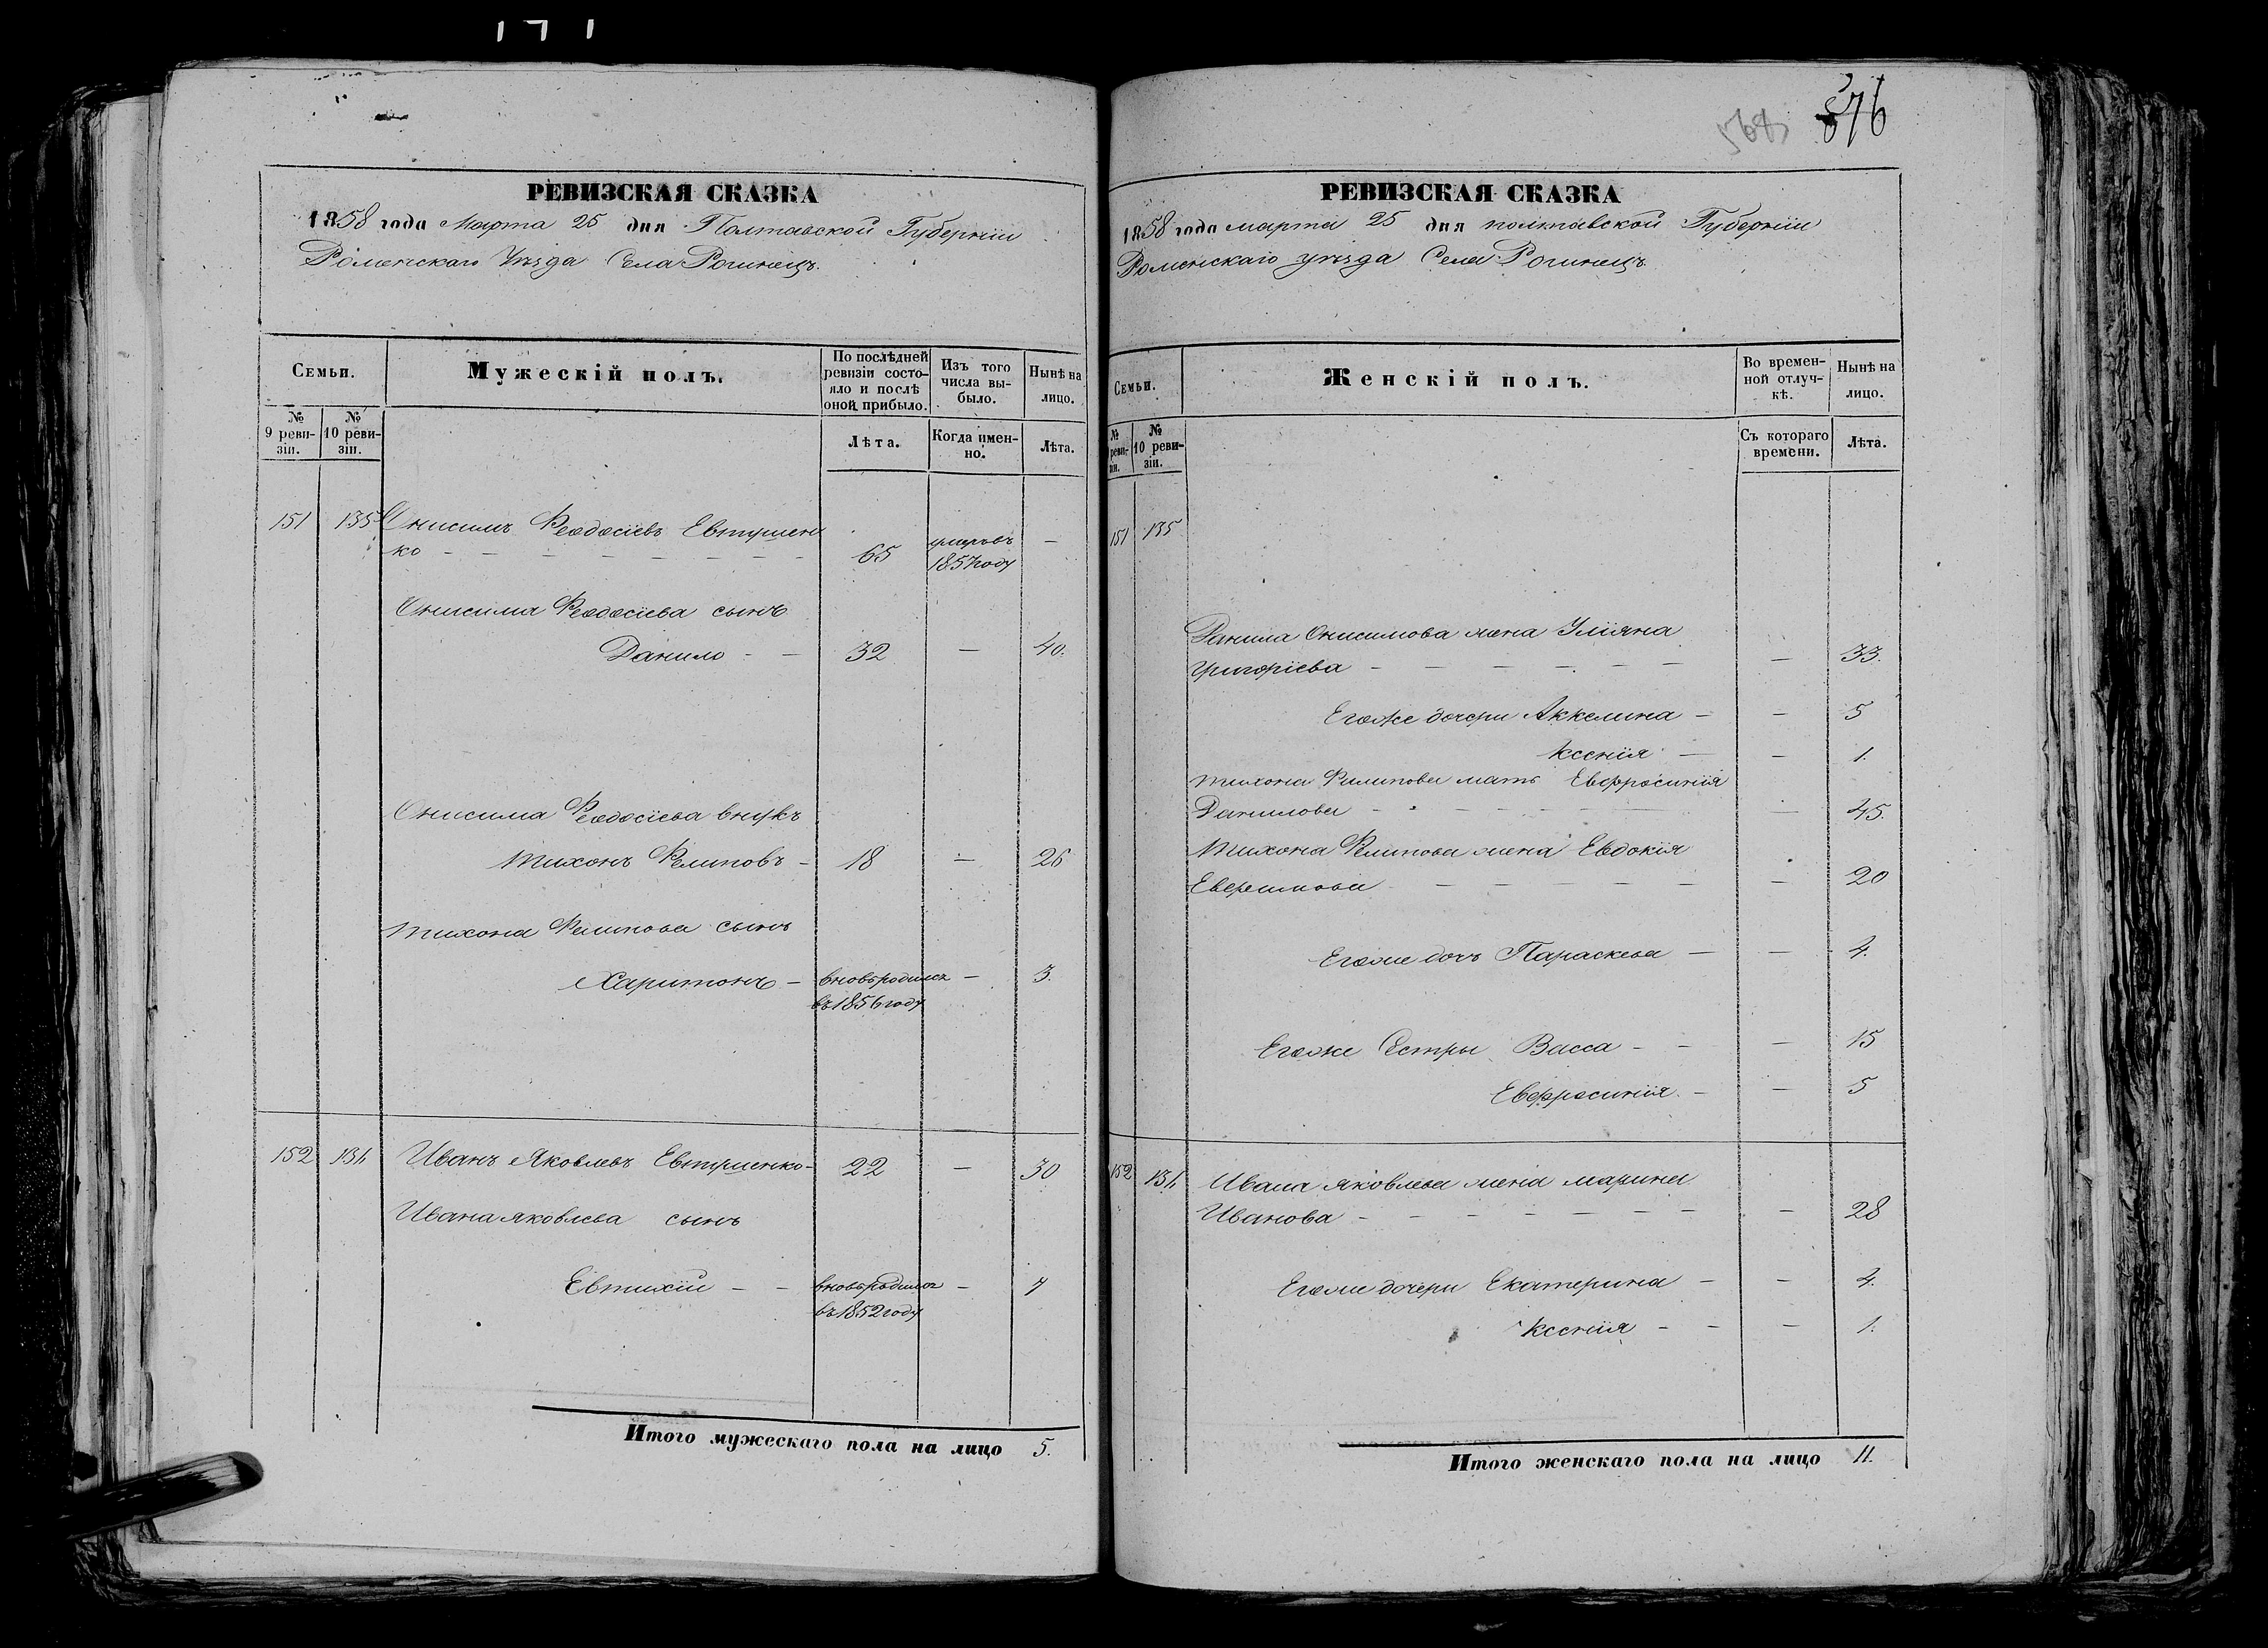 171
РЕВИЗСКАЯ СКАЗКА
1858 года Марта 25 дня Полтавской Губерніи
Роменскаго Уѣзда Села Рогинецъ.
Семьи.
Мужескій полъ.
По послѣдней ревизіи состояло и послѣ оной прибыло.
Изъ того числа выбыло.
Нынѣ на лицо.
№ 9 ревизіи.
№ 10 ревизіи.
Лѣта.
Когда именно.
Лѣта.
151 135 Онисимъ Феодосіевъ Евтушен
ко — — — — — — — 65 умеръ въ 1857 году —
Онисима Феодосіева сынъ
Данило — — 32 — 40.
Онисима Феодосіева внукъ
Тихонъ Филиповъ — 18 — 26
Тихона Филипова сынъ
Харитонъ — вновь родился — 3.
въ 1856 году
152 136 Иванъ Яковлевъ Евтушенко — 22 — 30
Ивана Яковлева сынъ
Евтихій — — вновь родился — 7
въ 1852 году
Итого мужескаго пола на лицо 5.
568 376
РЕВИЗСКАЯ СКАЗКА
1858 года марта 25 дня полтавской Губерніи
Роменскаго уѣзда Села Рогинецъ
Семьи.
Женскій полъ.
Во временной отлучкѣ.
Нынѣ на лицо.
№ реви-
зіи.
№ 10 ревизіи.
Съ котораго времени.
Лѣта.
151 135
Данила Онисимова жена Уліяна
Григоріева — — — — — — — 33.
Егоже дочери Аккелина — — 5
Ксенія — — 1.
Тихона Филипова мать Евфросинія
Данилова — — — — — — 45.
Тихона Филипова жена Евдокія
— — — — — — 20
Егоже дочь Параскева — — 4.
Егоже Сестры Васса — — — 15
Евфросинія. — — 5
152 136 Ивана Яковлева жена Марина
Иванова — — — — — — — — 28
Егоже дочери Екатерина — — 4.
Ксенія — — — 1.
Итого женскаго пола на лицо 11.